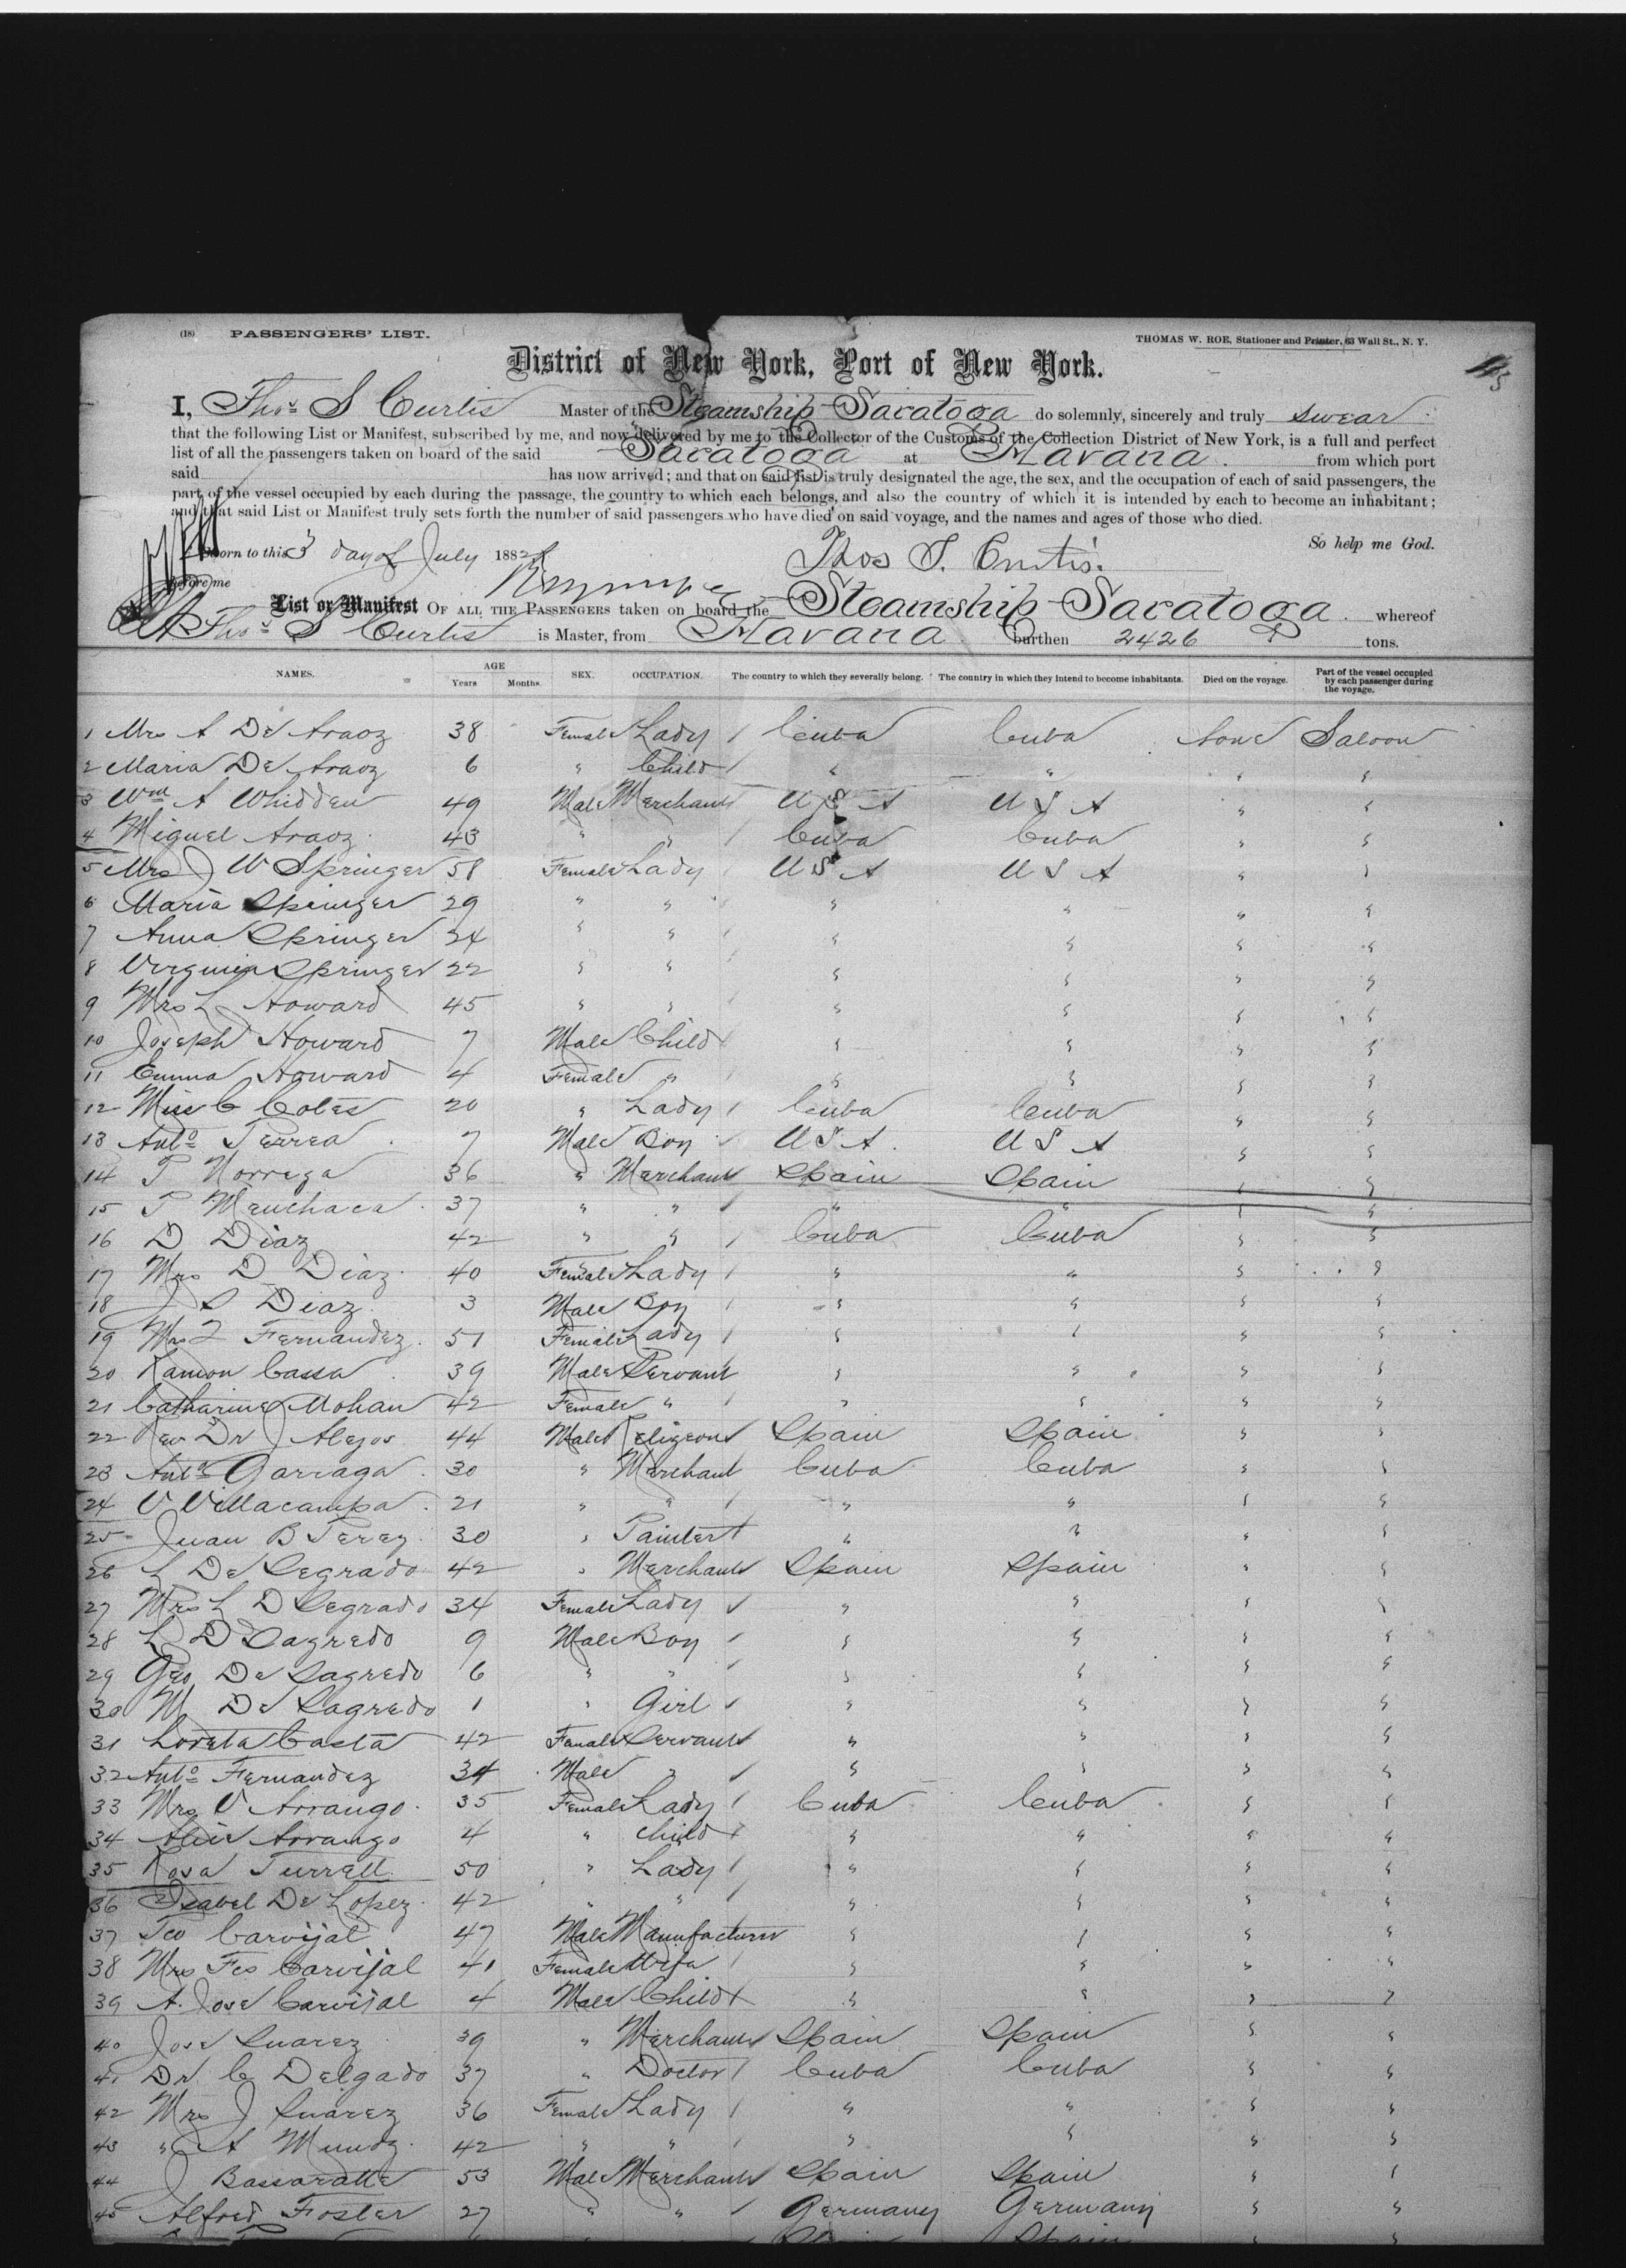 (18) PASSENGERS' LIST.
THOMAS W. ROE, Stationer and Printer, 63 Wall St., N. Y.
District of New York, Port of New York.
I, Thos S Curtis Master of the Steamship Saratoga do solemnly, sincerely and truly swear
that the following List or Manifest, subscribed by me, and now delivered by me to the Collector of the Customs of the Collection District of New York, is a full and perfect
list of all the passengers taken on board of the said Saratoga at Havana. from which port
said has now arrived; and that on said list is truly designated the age, the sex, and the occupation of each of said passengers, the
part of the vessel occupied by each during the passage, the country to which each belongs, and also the country of which it is intended by each to become an inhabitant;
and that said List or Manifest truly sets forth the number of said passengers who have died on said voyage, and the names and ages of those who died.
So help me God.
Sworn to this 3 day of July 188
Thos S. Curtis.
Before me
List or Manifest OF ALL THE PASSENGERS taken on board the Steamship Saratoga. whereof
Thos S Curtis is Master, from Havana burthen 2426 tons.
NAMES. AGE Years Months. SEX. OCCUPATION. The country to which they severally belong. The country in which they intend to become inhabitants. Died on the voyage. Part of the vessel occupied by each passenger during the voyage.
1 Mrs A De Araoz 38 Female Lady Cuba Cuba None Saloon
2 Maria De Araoz 6 " Child " " " "
3 Wm A Whidden 49 Male Merchant U S A U S A " "
4 Miguel Araoz 43 " " Cuba Cuba " "
5 Mrs J W Springer 58 Female Lady U S A U S A " "
6 Maria Springer 29 " " " " " "
7 Anna Springer 24 " " " " " "
8 Virginia Springer 22 " " " " " "
9 Mrs L Howard 45 " " " " " "
10 Joseph Howard 7 Male Child " " " "
11 Emma Howard 4 Female " " " " "
12 Miss C Coles 20 " Lady Cuba Cuba " "
13 Anto Perrea 7 Male Boy U S A U S A " "
14 P Norrega 36 " Merchant Spain Spain " "
15 P Menchaca 37 " " " " " "
16 D Diaz 42 " " Cuba Cuba " "
17 Mrs D Diaz 40 Female Lady " " " "
18 J S Diaz 3 Male Boy " " " "
19 Mrs F Fernandez 51 Female Lady " " " "
20 Ramon Cassa 39 Male Servant " " " "
21 Catharine Mohan 42 Female " " " " "
22 Rev Dr J Alejos 44 Male Religeous Spain Spain " "
23 Anto Garraga 30 " Merchant Cuba Cuba " "
24 V Villacampa 21 " " " " " "
25 Juan B Perez 30 " Painter " " " "
26 L De Segrado 42 " Merchant Spain Spain " "
27 Mrs L D Segrado 34 Female Lady " " " "
28 L D Sagredo 9 Male Boy " " " "
29 Geo De Sagredo 6 " " " " " "
30 M De Sagredo 1 " Girl " " " "
31 Loreta Casta 42 Female Servant " " " "
32 Anto Fernandez 34 Male " " " " "
33 Mrs V Arrango 35 Female Lady Cuba Cuba " "
34 Alice Arrango 4 " Child " " " "
35 Rosa Turrell 50 " Lady " " " "
36 Isabel De Lopez 42 " " " " " "
37 Fco Carvijal 47 Male Manufacturer " " " "
38 Mrs Fco Carvijal 41 Female Wife " " " "
39 A. Jose Carvijal 4 Male Child " " " "
40 Jose Suarez 39 " Merchant Spain Spain " "
41 Dr. C Delgado 37 " Doctor Cuba Cuba " "
42 Mrs J Suarez 36 Female Lady " " " "
43 " A Mundz 42 " " " " " "
44 J Bassaratte 53 Male Merchant Spain Spain " "
45 Alfred Foster 27 " " Germany Germany " "